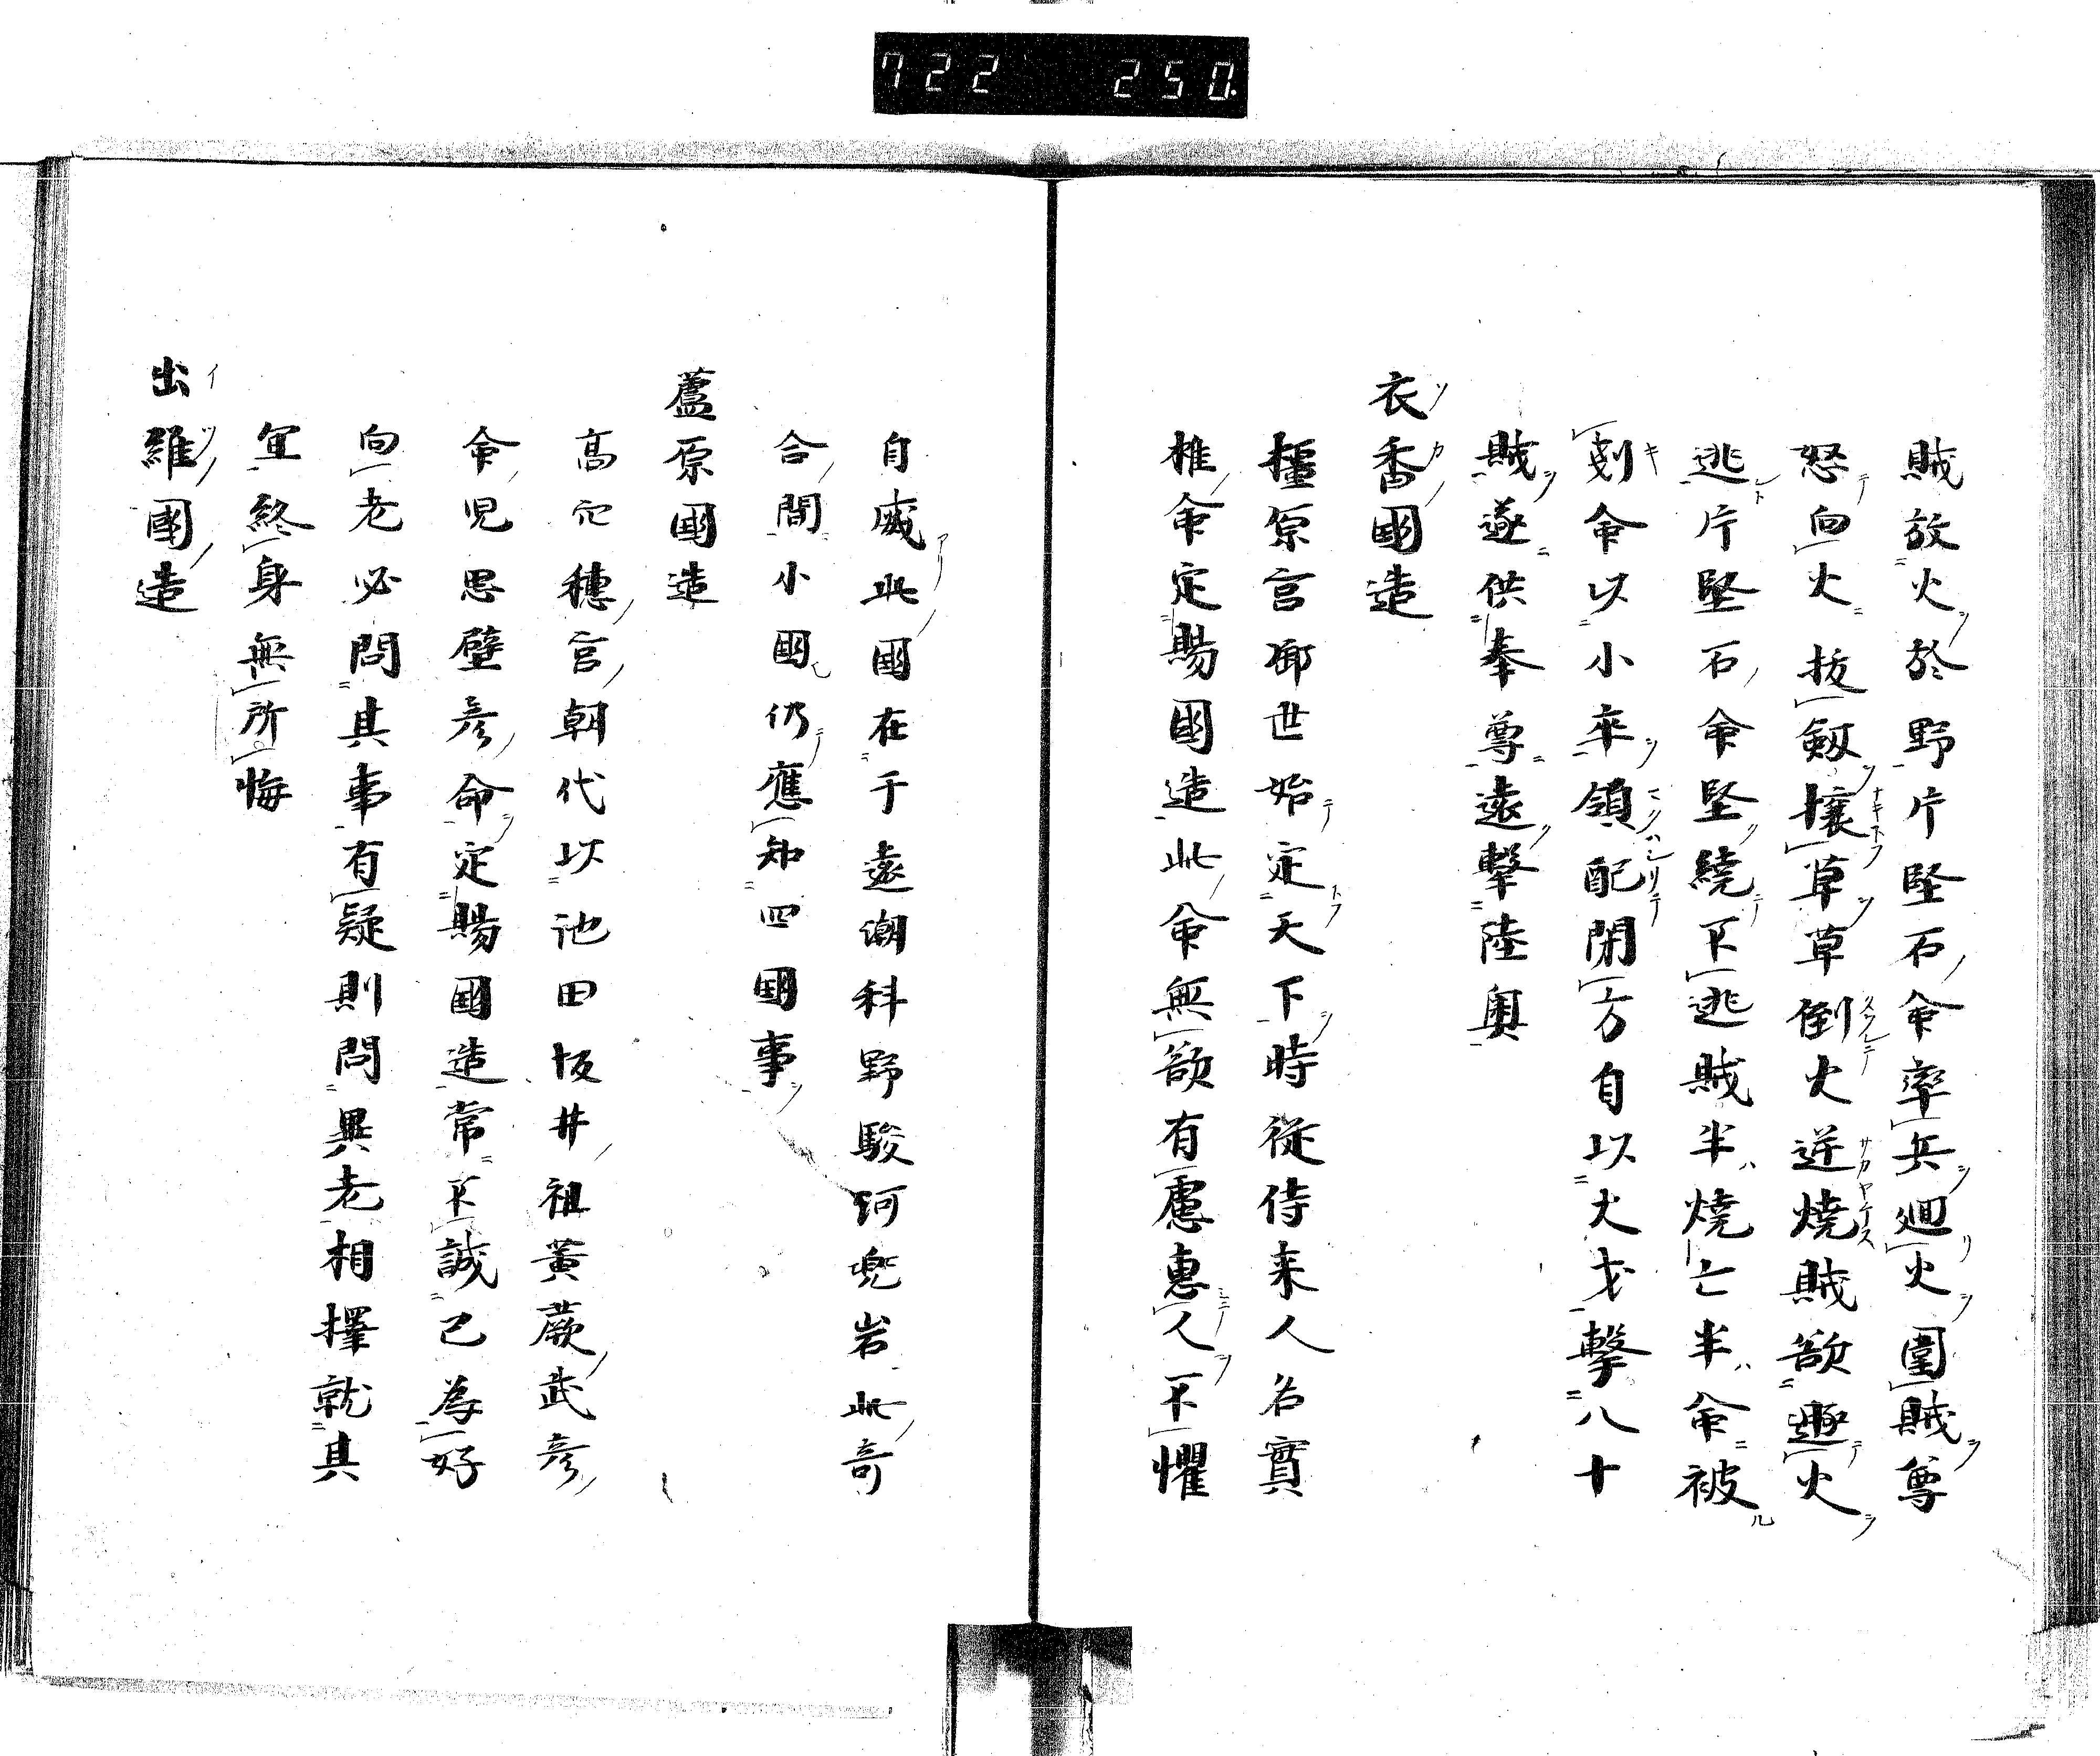 722 250.
賊放火於野片堅石命率兵廻火圍賊尊
怒向火抜劔攘草草倒火逆燒賊欲趣火
逃片堅石命堅繞不逃賊半燒亡半命被
剋命以小卒領配閉方自以大戈擊八十
賊遂供奉尊遠擊陸奥
衣香國造
橿原宮御世始定天下時從侍来人名實
椎命定賜國造此命無欲有慮惠人不懼
自威此國在于遠潮科野駿河兜岩此奇
合間小國仍應知四國事
蘆原國造
高穴穗宮朝代以池田坂井祖黃蕨武彦
命児思壁彦命定賜國造常不誠己為好
向老必問其事有疑則問異老相擇就其
宜終身無所悔
出羅國造